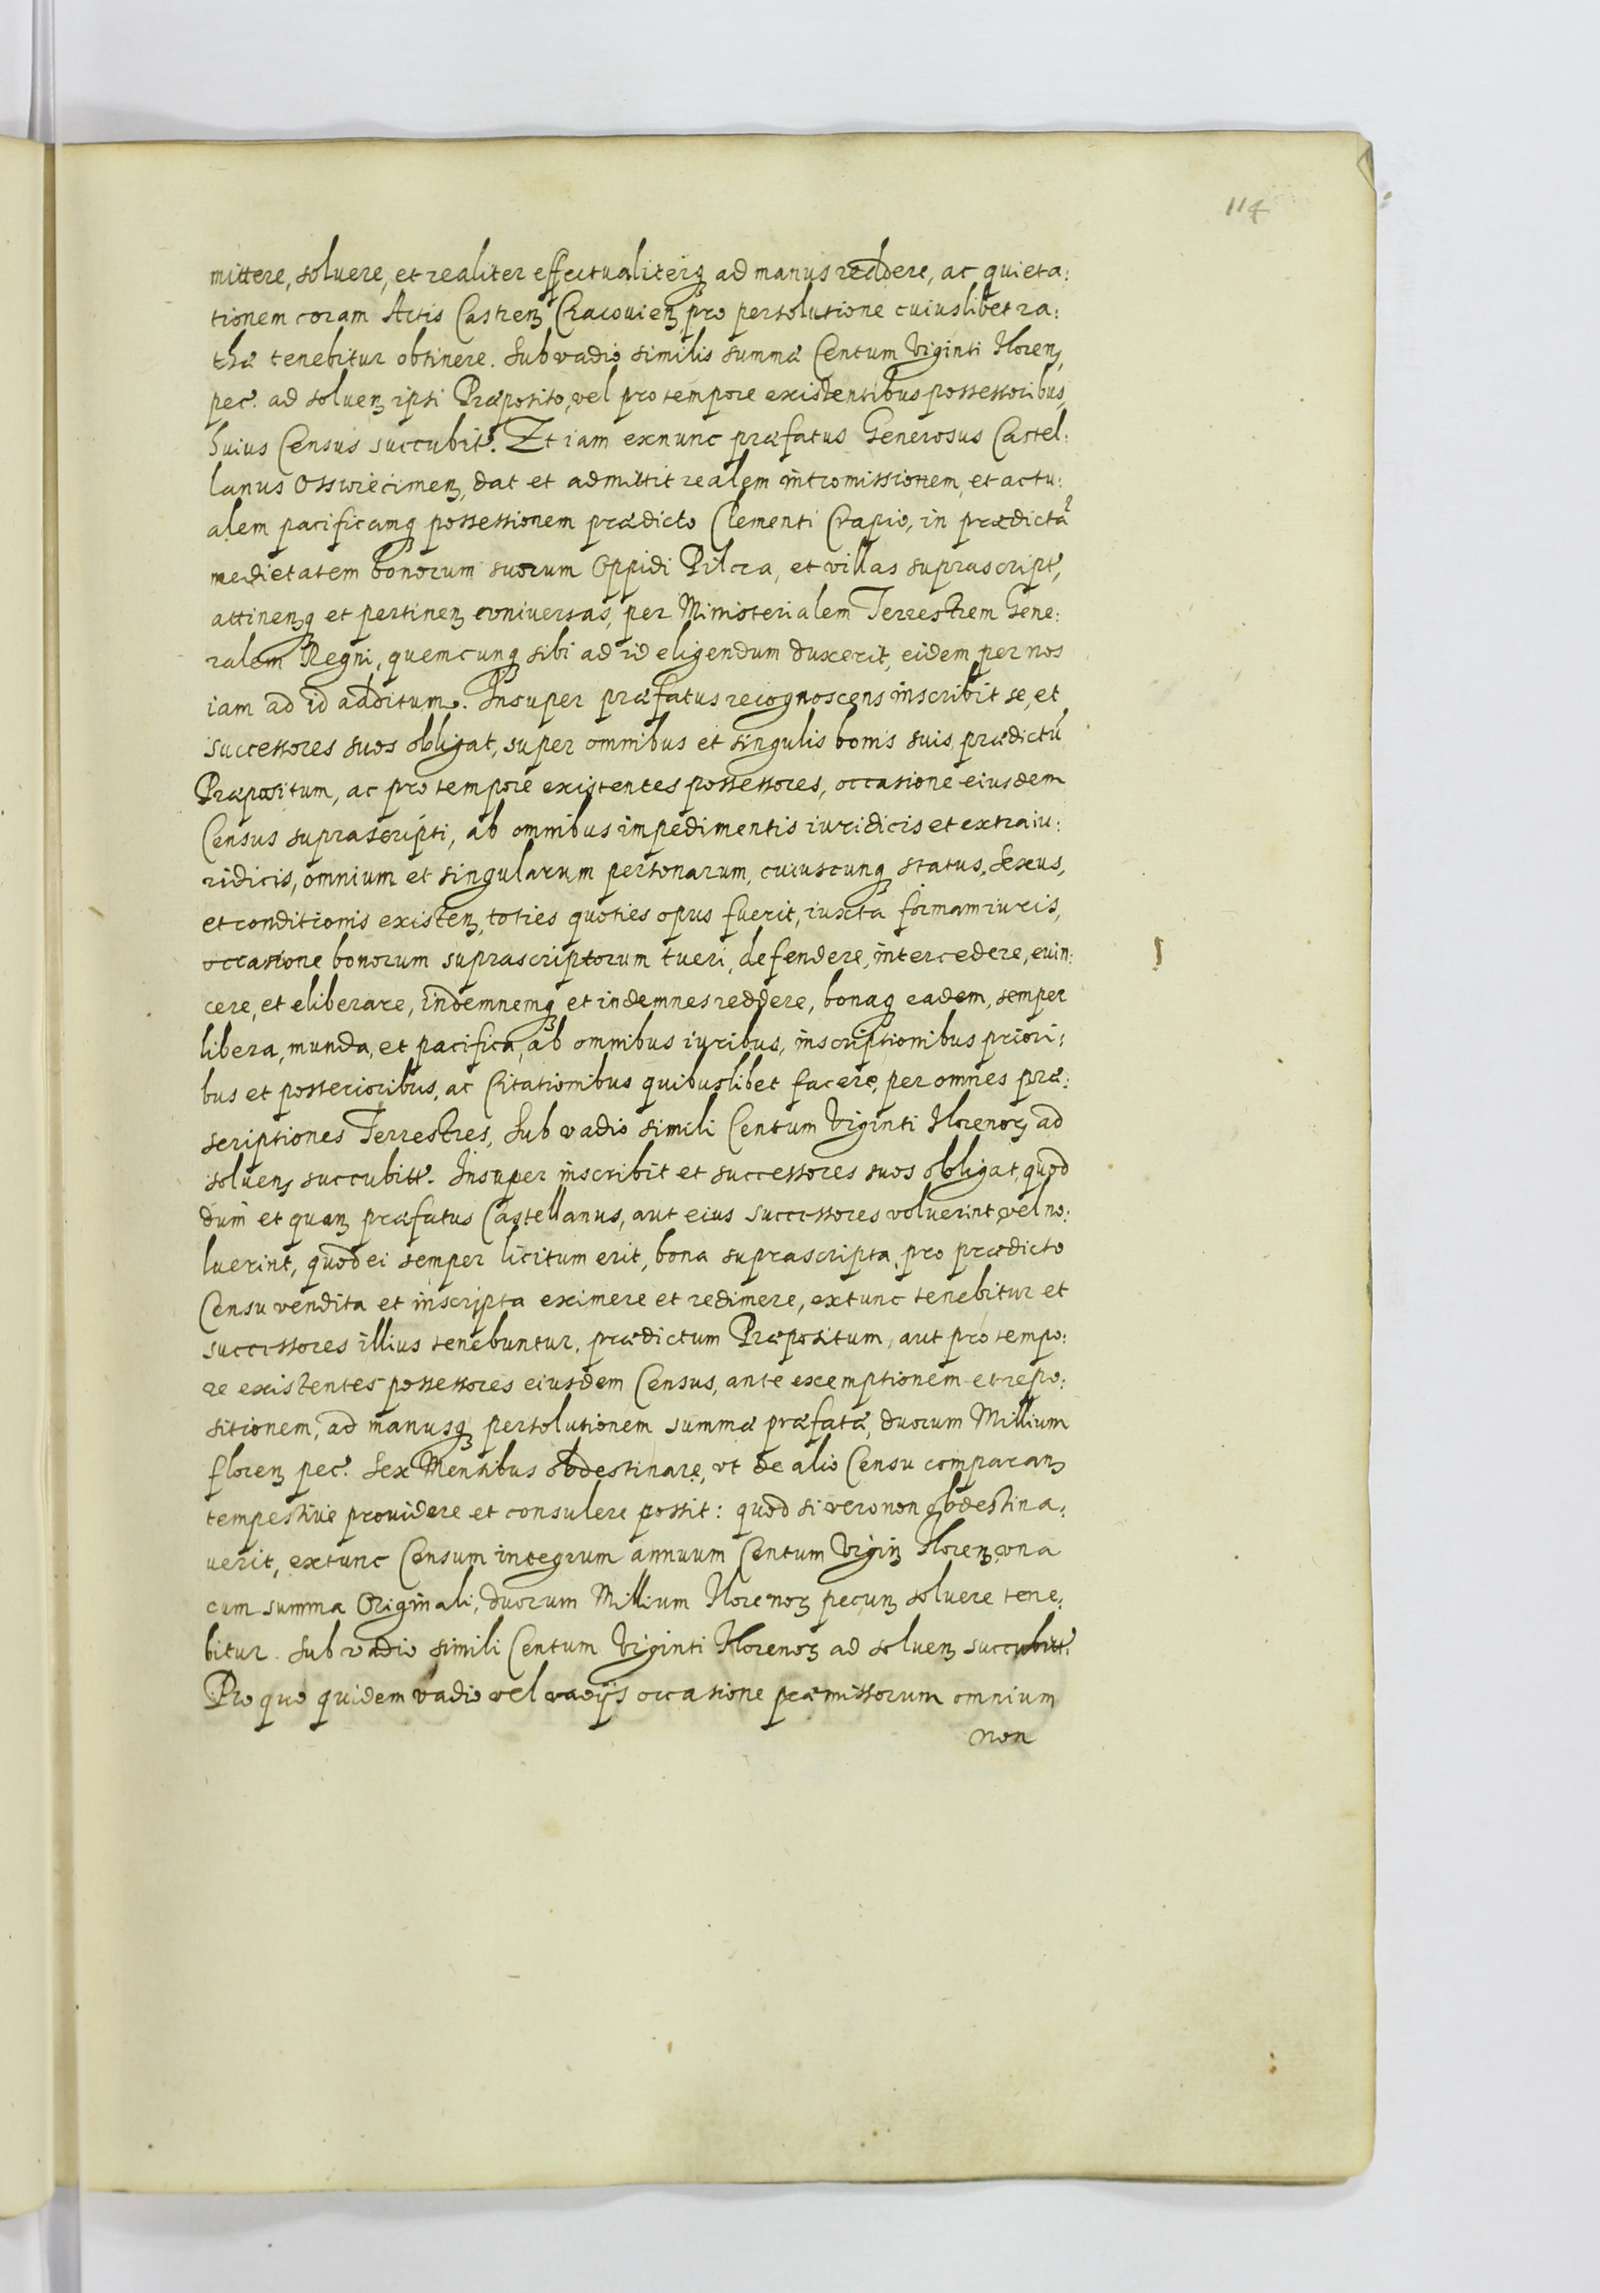 114
mittere, soluere, et realiter effectualiterqꝫ ad manus reddere, ac quieta:
tionem coram Actis Castreꝫ Cracouieꝫ pro persolutione cuiuslibet ra:
thæ tenebitur obtinere. Sub vadio similis summæ Centum Viginti Floreꝫ
pec̃. ad solueꝫ ipsi Præposito, vel pro tempore existentibus possessoribus,
huius Census succubit̃. Et iam exnunc præfatus Generosus Castel:
lanus Osswiecimeꝫ, dat et admittit realem intromissionem, et actu:
alem pacificamqꝫ possessionem prædicto Clementi Crapio, in prædictã
medietatem bonorum suorum Oppidi Pilcza, et villas suprascript̃,
attineꝫqꝫ et pertineꝫ vniuersas, per Ministerialem Terrestrem Gene:
ralem Regni, quemcunqꝫ sibi ad id eligendum duxerit, eidem per nos
iam ad id additum. Insuper præfatus recognoscens inscribit se, et
successores suos obligat, super omnibus et singulis bonis suis, prædictũ
Præpositum, ac pro tempore existentes possessores, occasione eiusdem
Census suprascripti, ab omnibus impedimentis iuridicis et extraiu:
ridicis, omnium et singularum personarum, cuiuscunqꝫ status, sexus,
et conditionis existeꝫ, toties quoties opus fuerit, iuxta formam iuris,
occasione bonorum suprascriptorum tueri, defendere, intercedere, euin:
cere, et eliberare, indemnemqꝫ et indemnes reddere, bonaqꝫ eadem, semper
libera, munda, et pacifica, ab omnibus iuribus, inscriptionibus priori:
bus et posterioribus, ac Citationibus quibuslibet facere, per omnes præ:
scriptiones Terrestres, Sub vadio simili Centum Viginti Florenoꝫ ad
solueꝫ succubitt̃. Insuper inscribit et successores suos obligat, quod
dum et quaꝫ præfatus Castellanus, aut eius successores voluerint, vel no:
luerint, quod ei semper licitum erit, bona suprascripta, pro prædicto
Censu vendita et inscripta eximere et redimere, extunc tenebitur et
successores illius tenebuntur, prædictum Præpositum, aut pro tempo:
re existentes possessores eiusdem Census, ante exemptionem et repo:
sitionem, ad manusqꝫ persolutionem summæ præfatæ, duorum Millium
floreꝫ pec̃. Sex Mensibus obdestinare, vt de alio Censu comparaꝫ
tempestiue prouidere et consulere possit: quod si vero non obdestina:
uerit, extunc Censum integrum annuum Centum Vigiꝫ Floreꝫ vna
cum summa Originali, duorum Millium Florenoꝫ pecuꝫ soluere tene:
bitur. Sub vadio simili Centum Viginti Florenoꝫ ad solueꝫ succubitt̃.
Pro quo quidem vadio vel vadijs occasione præmissorum omnium
non